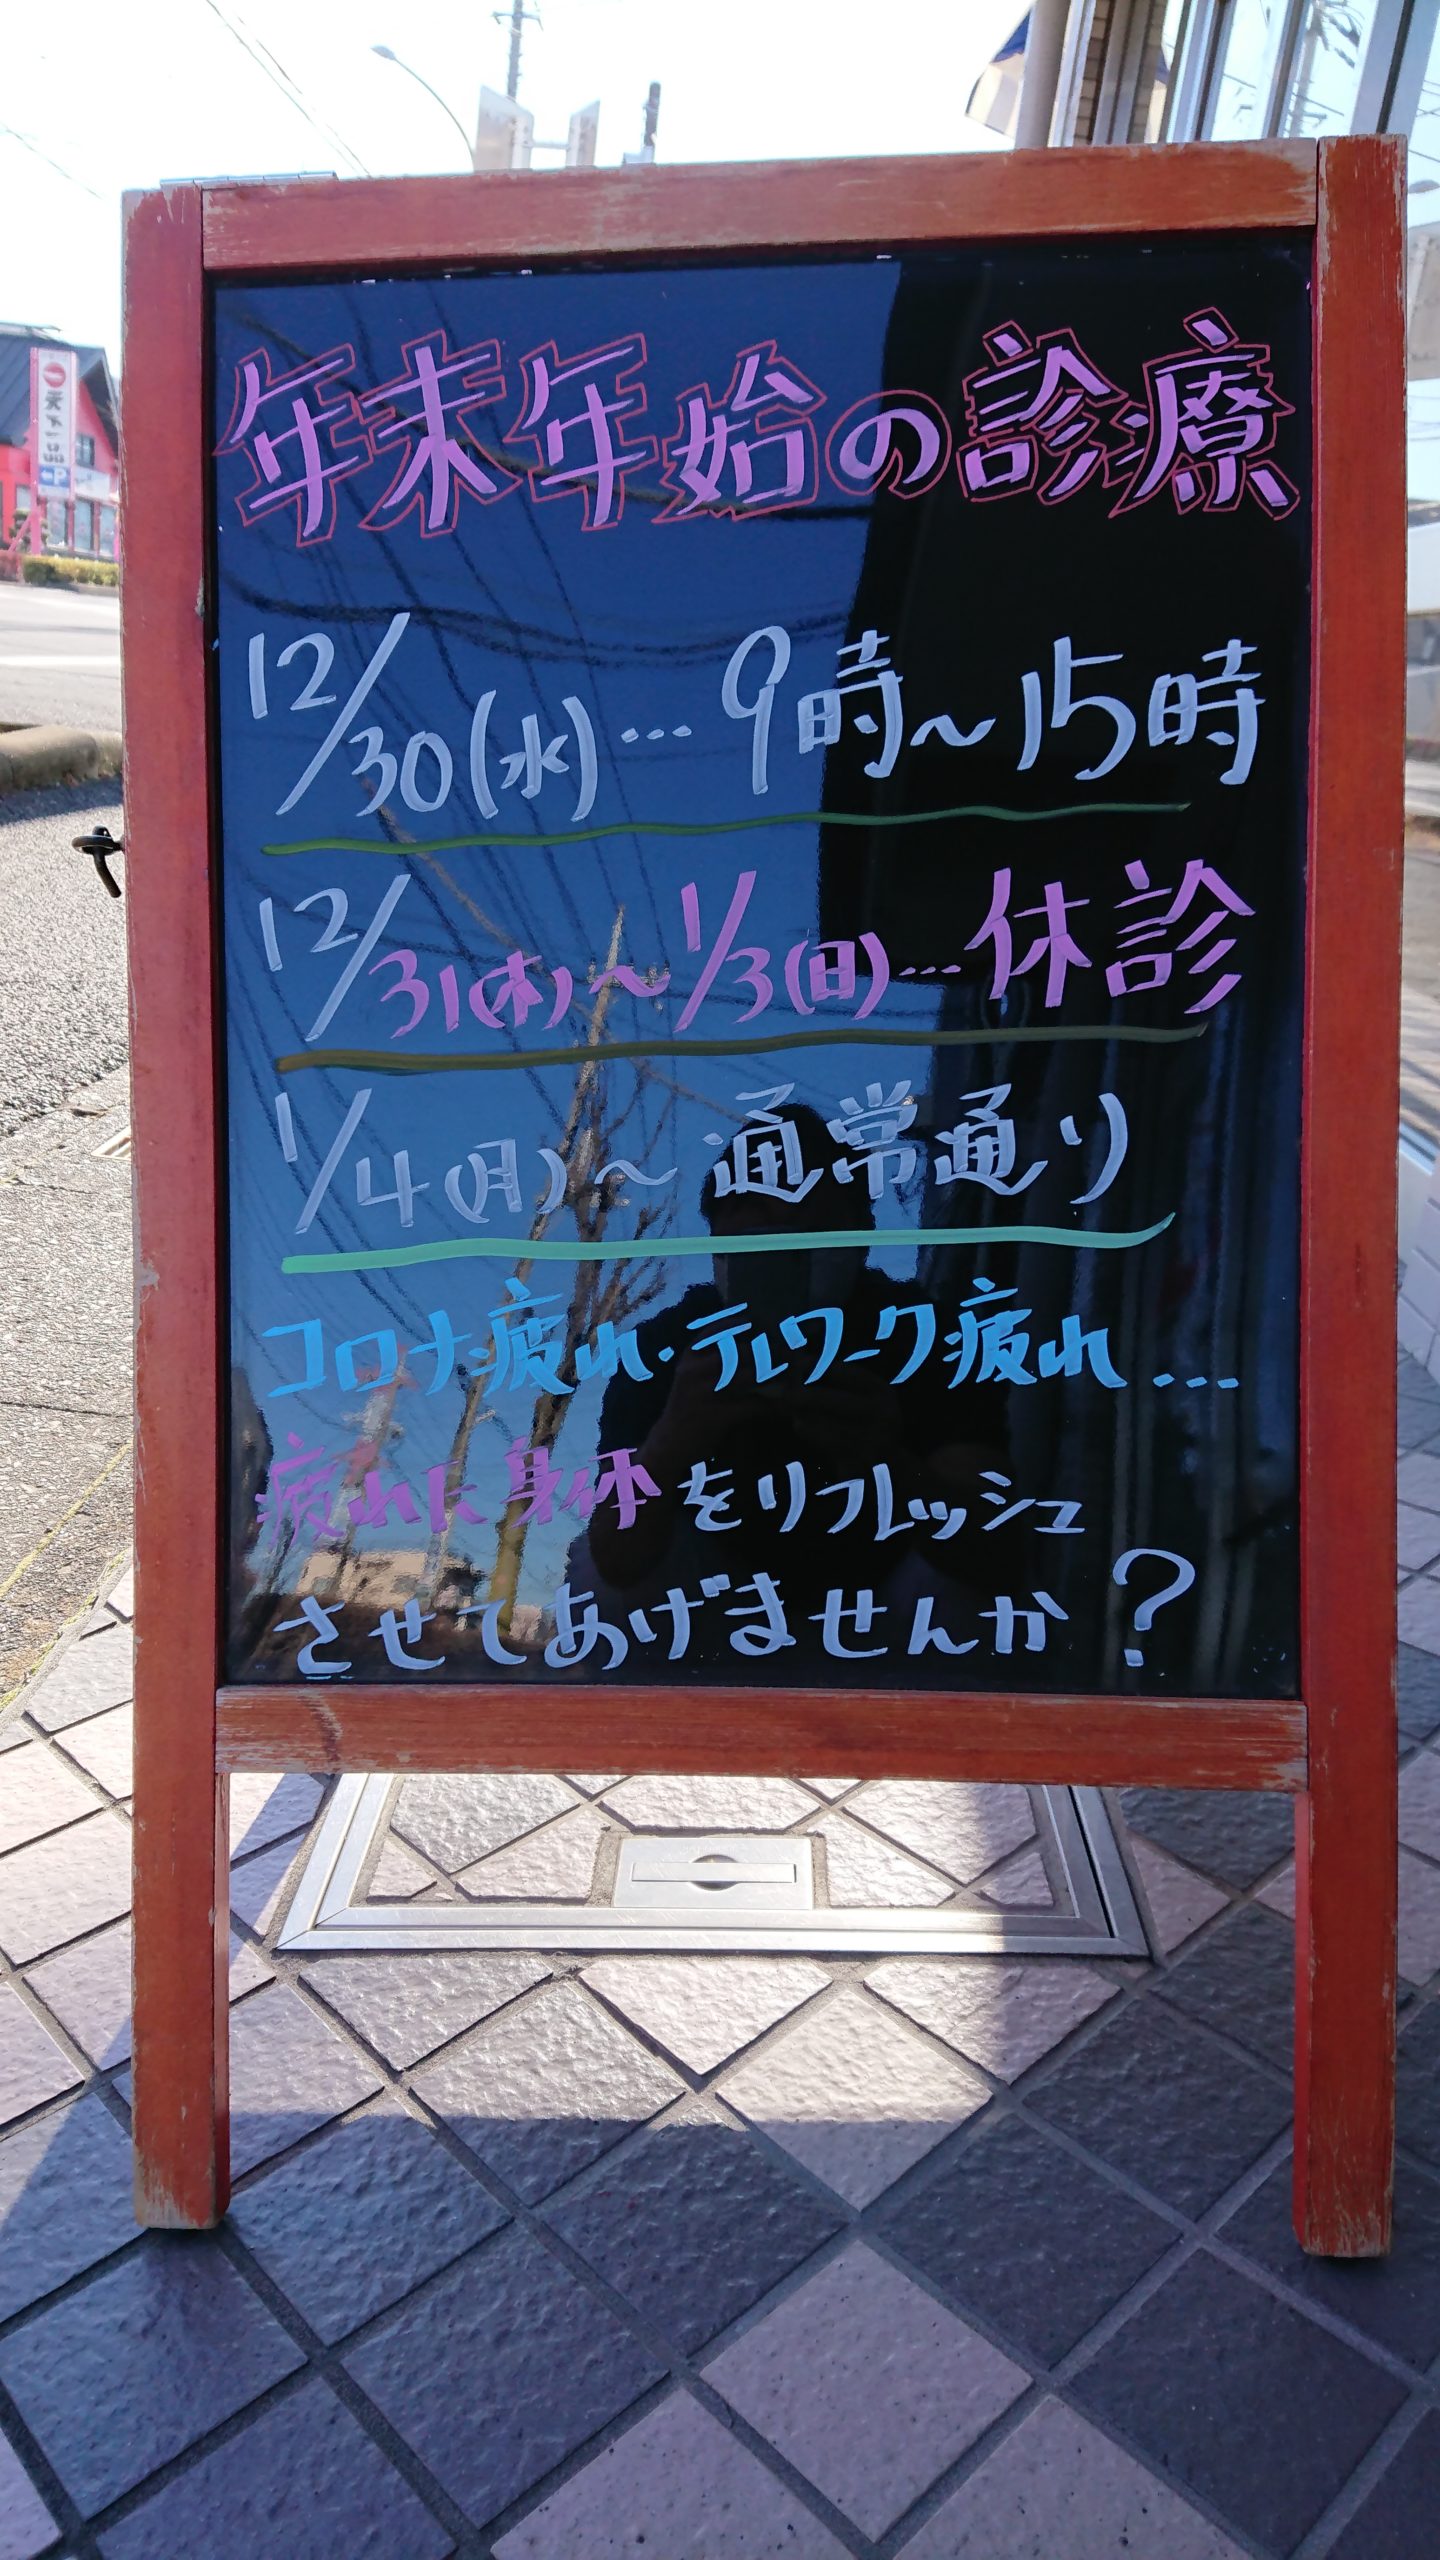 年末年始の診療
12/30(水)…9時～15時
12/31(木)～1/3(日)…休診
1/4(月)～通常通り
コロナ疲れ・テレワーク疲れ…
疲れた身体をリフレッシュ
させてあげませんか？
天下一品
P